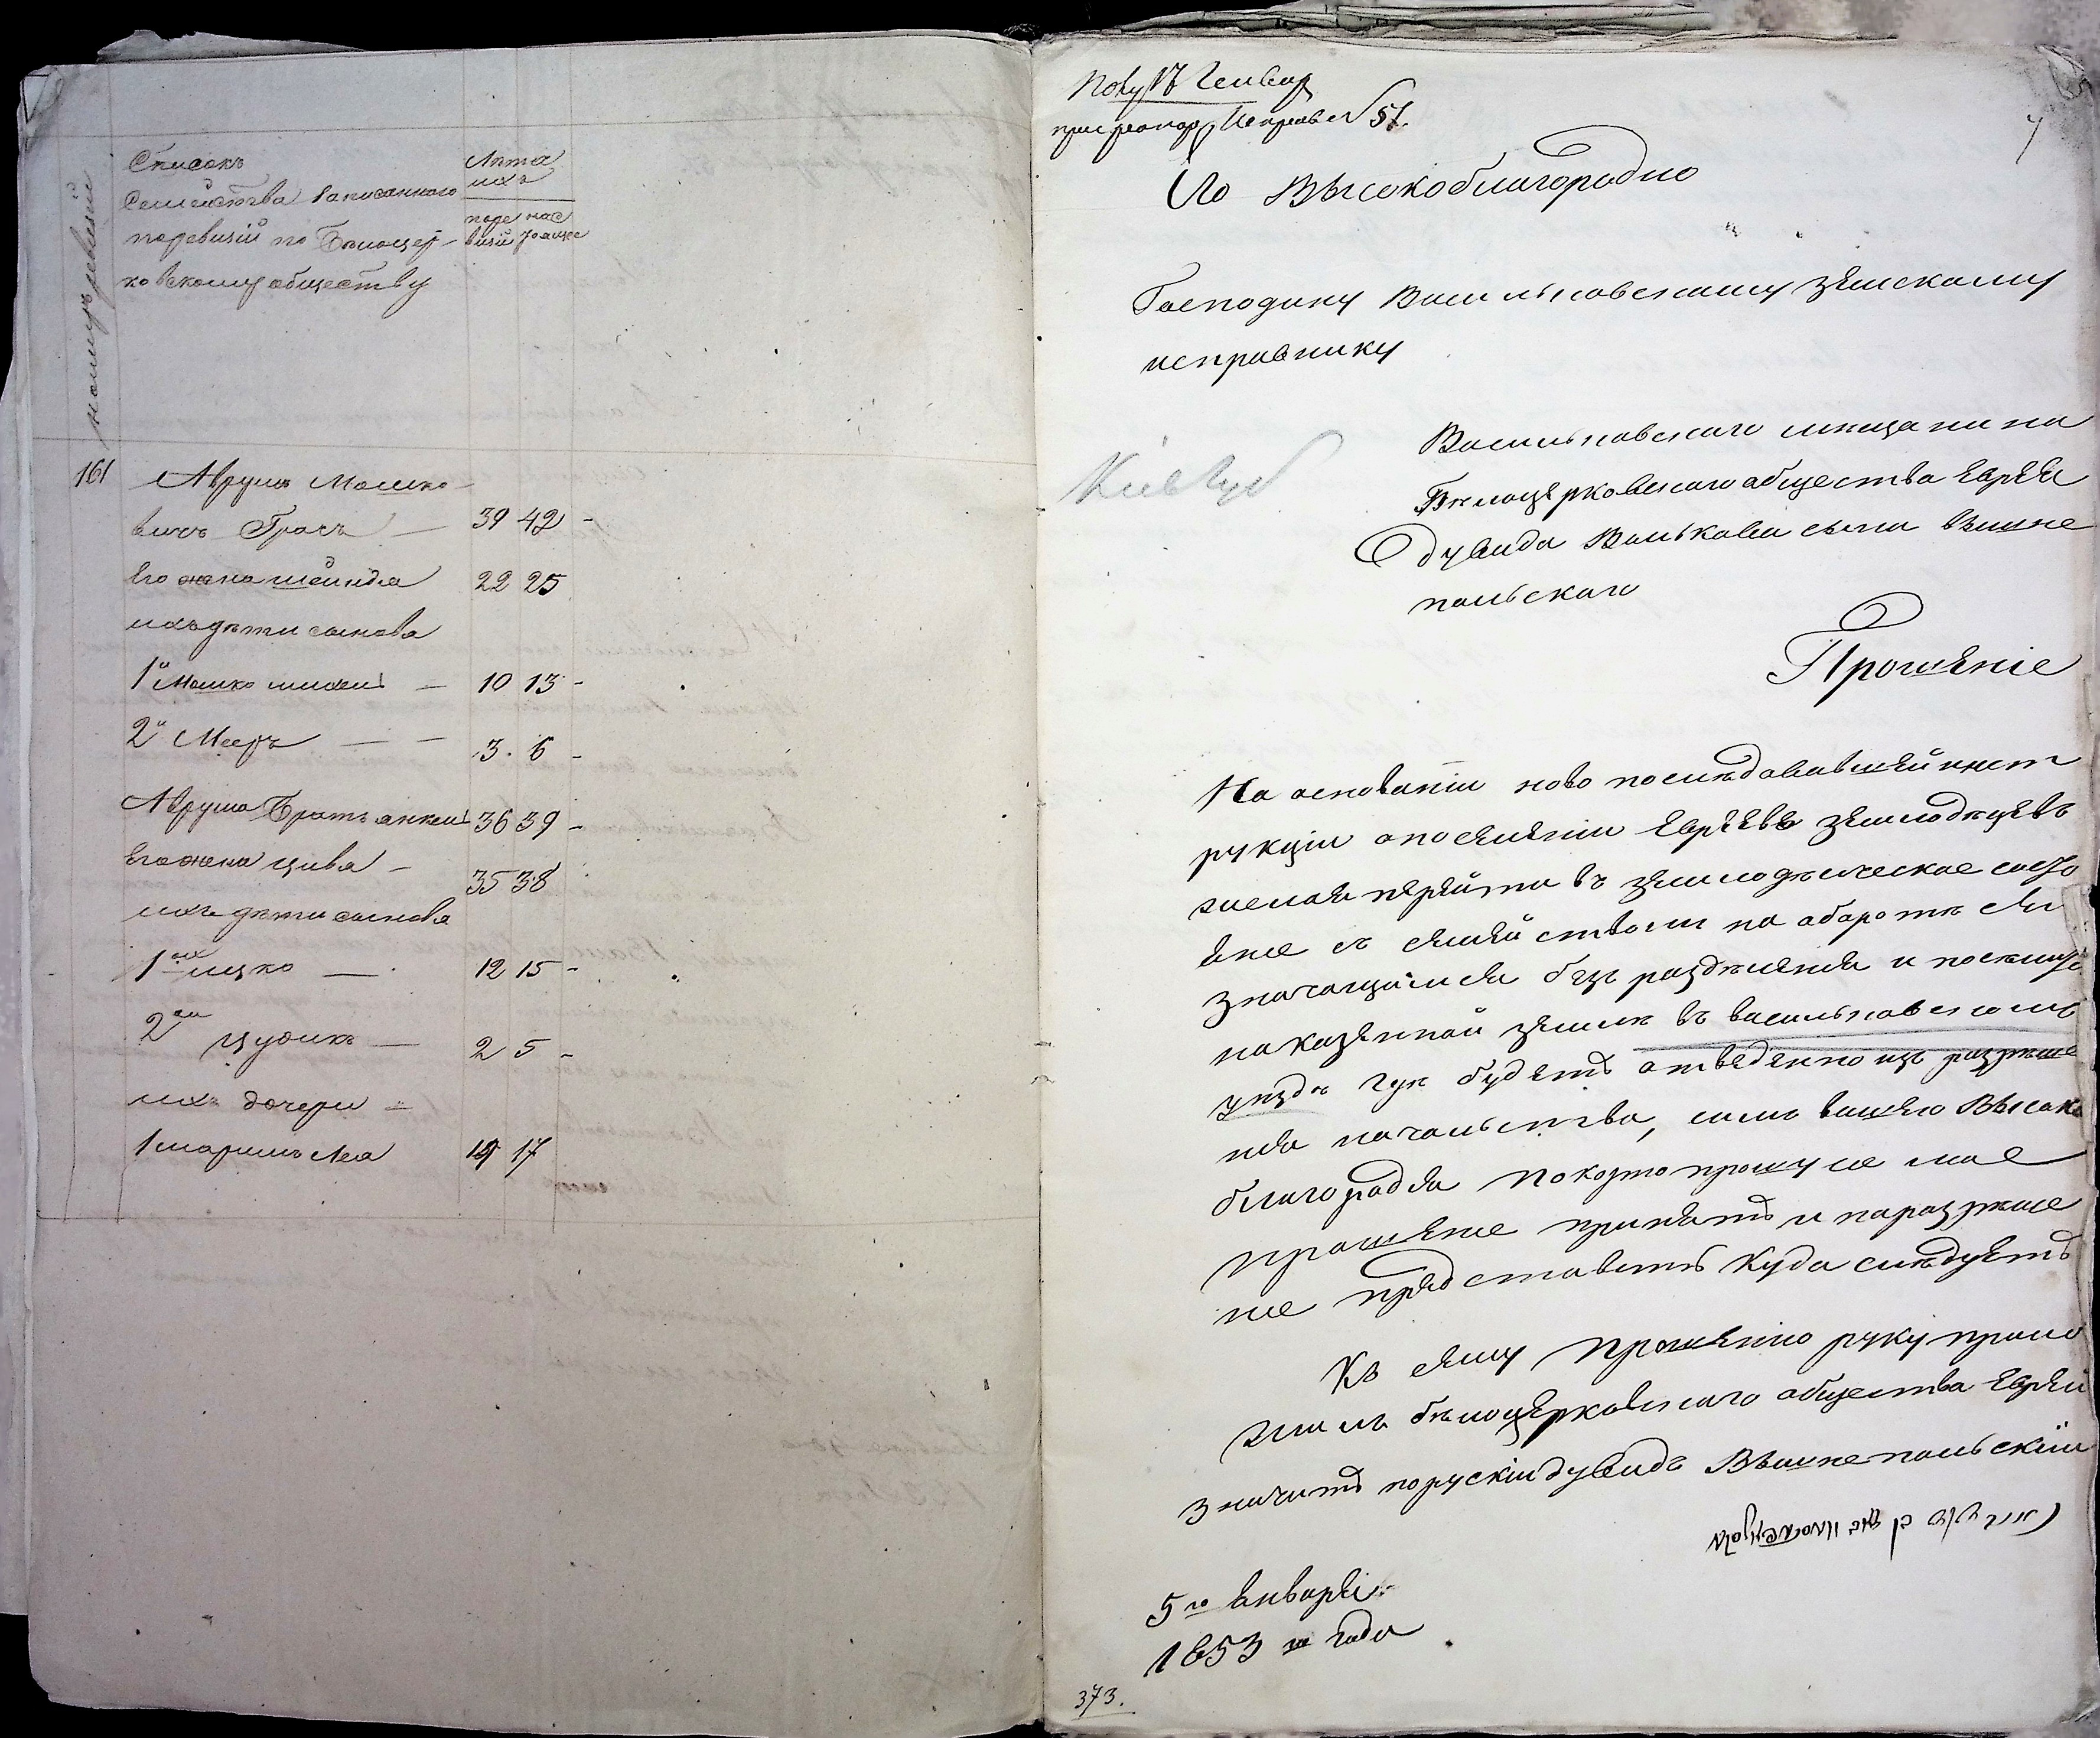 номеръ ревизiй
Списокъ
Семейства записанного
поревизiй по Белоцер-
ковскому обществу
Лета
ихъ
поре нас
визiи тояще
161
Аврумъ Мошко-
вичъ Грасъ — 39 42 -
Его жена шейндля 22 25
ихъ дѣти сынова
1й Мошко михель — 10 13 -
2й Мееръ — — 3. 6 -
Аврума Братъ янкель 36 39 -
Его жена цивя — 35 38
ихъ дѣти сынова
1ый ицко — 12 15 -
2ой цудикъ — 2 5 -
ихъ дочери —
1 марьимъ Леа 14 17
Полу 17 Генвар
при рапор Исправ № 51.
4
Его Высокоблагородию
Господину Васильковскому земскому
исправнику
Васильковского мещанина
Белоцерковского общества Еврея
дувида Волькова сына Вышне
польскаго
Прошенiе
На основанiи ново последовавшей инст
рукцiи опоселенiи Евреевъ земледѣцевъ
желая перейти въ земледѣлческое состо
янiе съ семействомъ на оборотѣ сего
значащимся безъ раздѣленiя и поселится
на казенной землѣ въ васильковскомъ
уездѣ гдѣ будетъ отведенно изъ разреше
нiя начальства, симъ вашего Высоко
благородiя покорно прошу сiе мое
прошенiе принять и на разреше
нiе представить куда следуетъ
Къ сему прошенiю руку прило
жилъ белоцерковского общества Еврей
значитъ поруский дувидъ Вышнепольскiй
5го января
1853 го года
373.